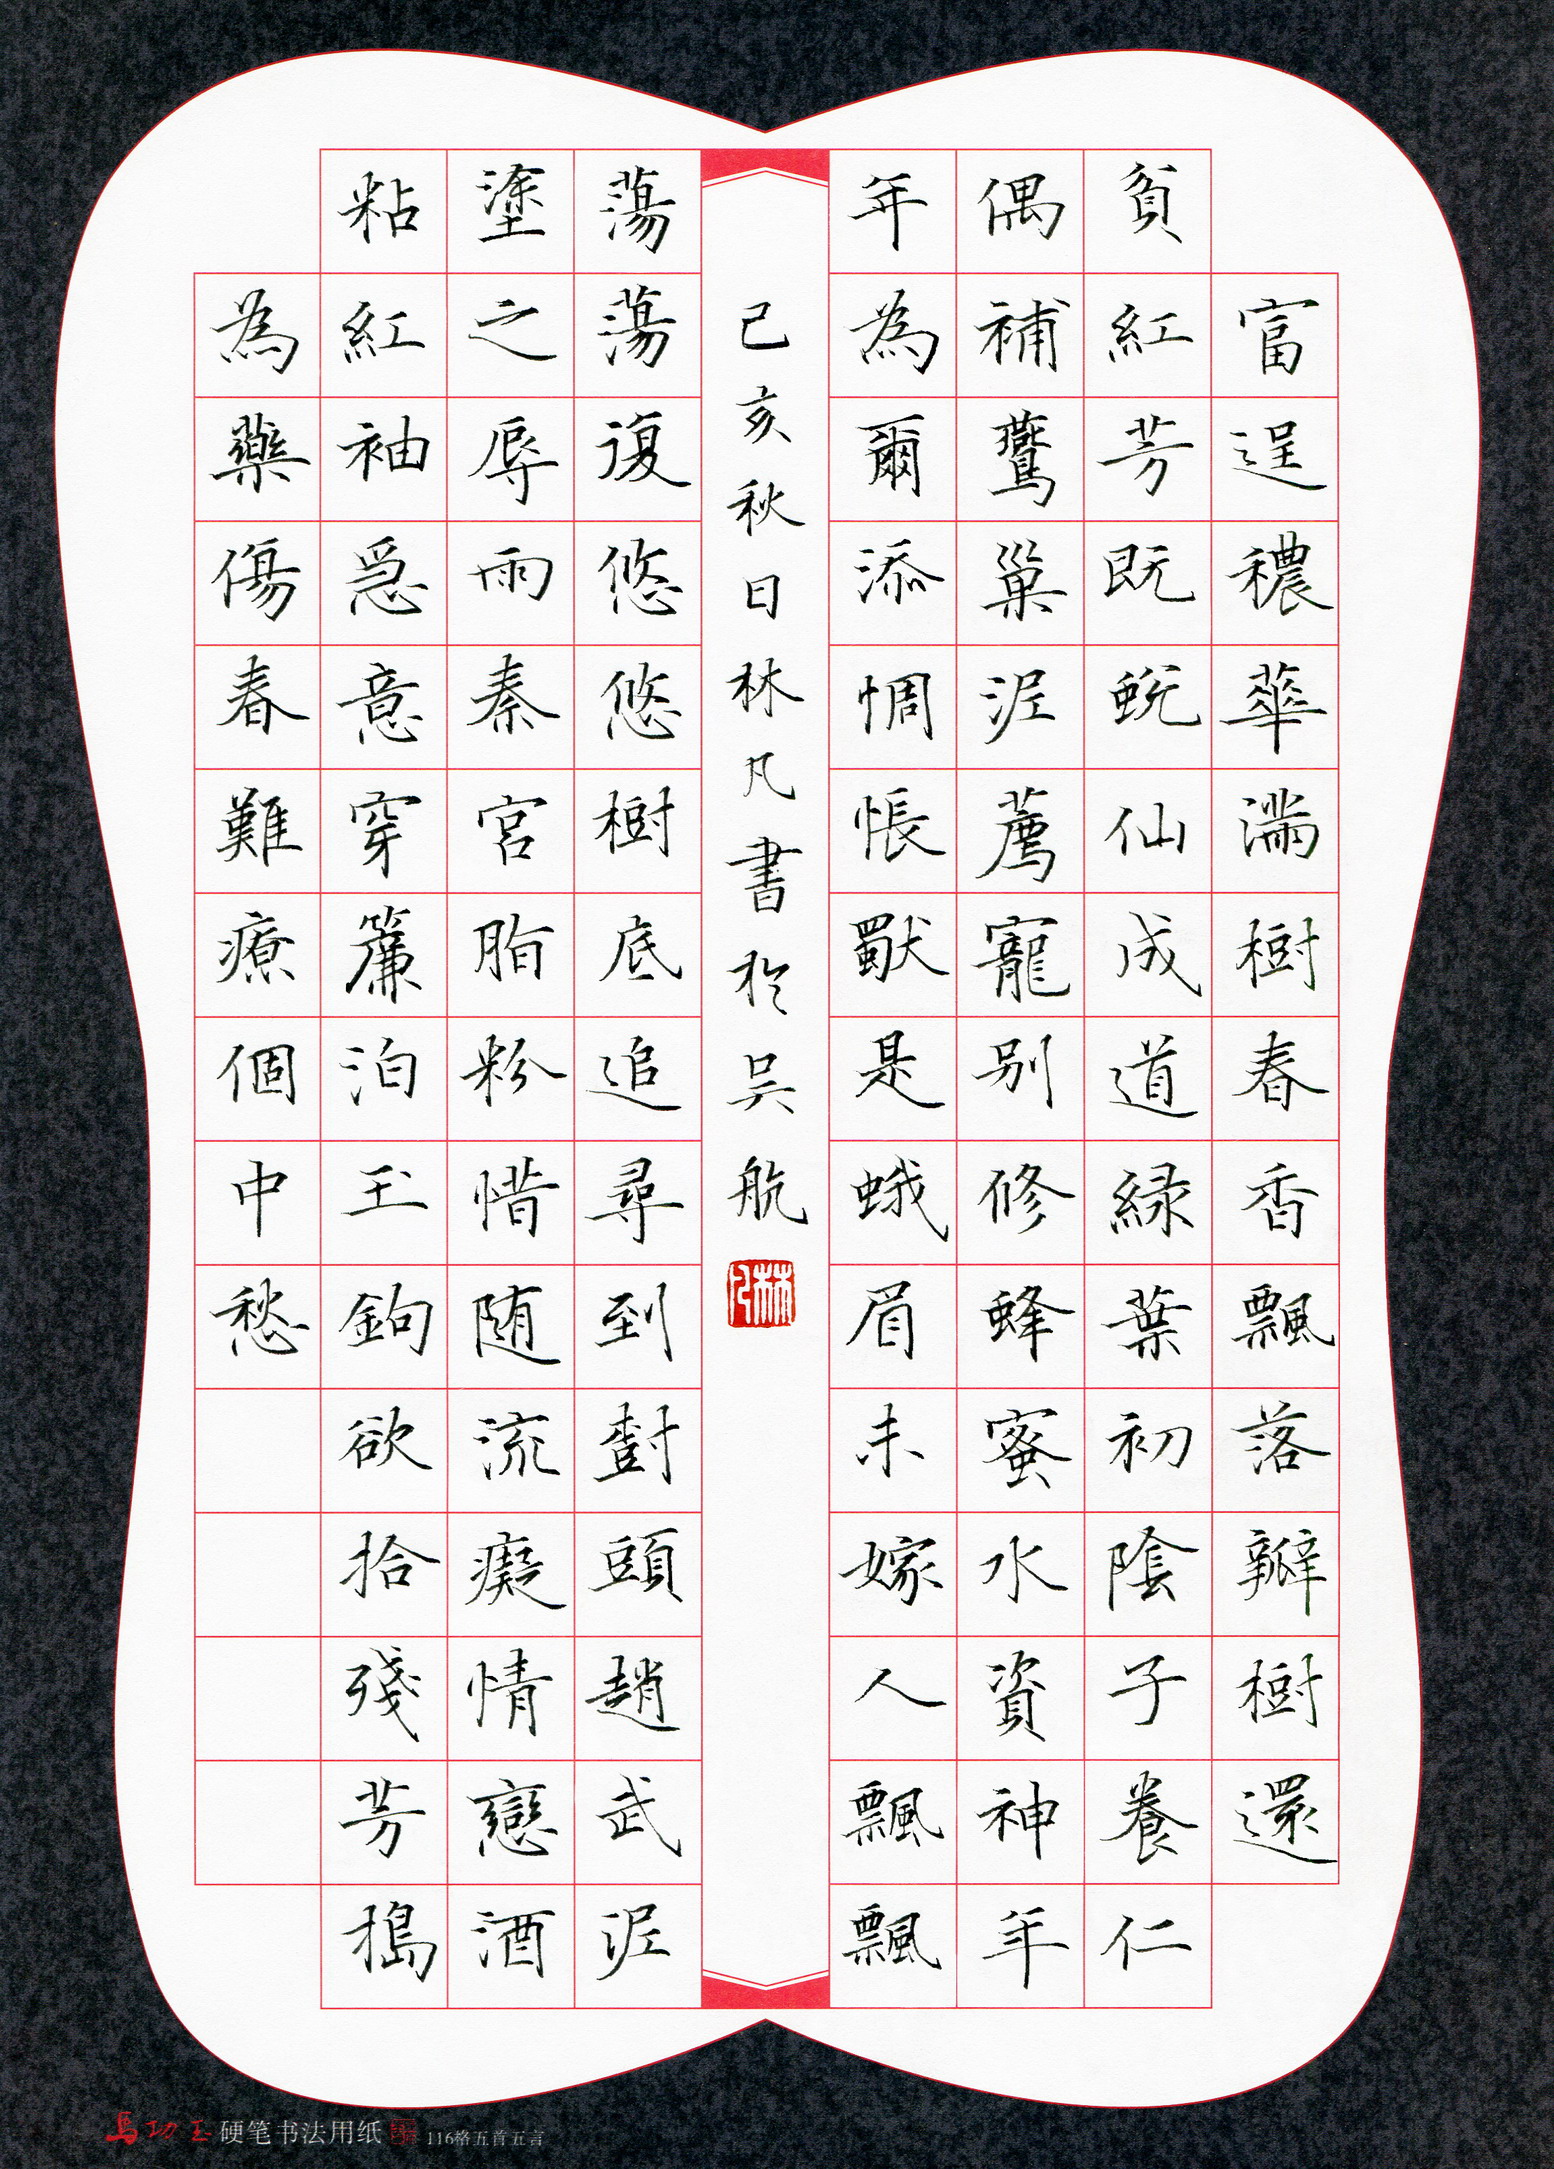 富逞穠華滿樹春香飄落瓣樹還
貧紅芳既蛻仙成道緑葉初陰子養仁
偶補鷰巢泥薦寵别修蜂蜜水資神年
年為爾添惆悵獨是蛾眉未嫁人飄飄
己亥秋日林凡書於吴航
蕩蕩復悠悠樹底追尋到樹頭趙武泥
塗之辱雨秦宮脂粉惜随流癡情戀酒
粘紅袖急意穿簾泊玉鉤欲拾殘芳搗
為藥傷春難療個中愁
馬功玉 硬笔书法用纸 116格五首五言